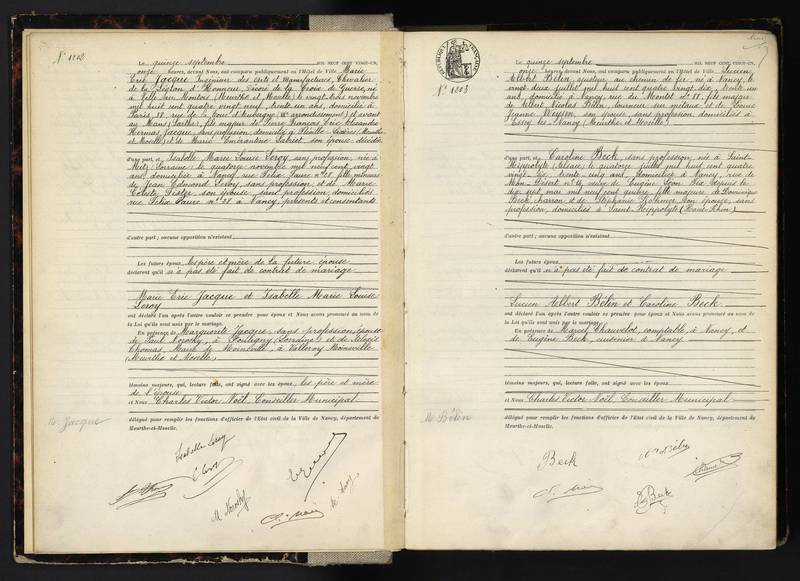 N° 1202
Le quinze septembre MIL NEUF CENT VINGT-UN,
onze heures, devant Nous, ont comparu publiquement en l'Hôtel de Ville Marie
Eric Jacque Ingénieur des Arts et Manufactures, Chevalier
de la Légion d'Honneur, décoré de la Croix de Guerre, né
à (Meurthe et Moselle) le vingt-trois novembre
mil huit cent quatre vingt neuf, trente un ans, domicilié à
Paris, 58, rue de la Tour d'Auvergne arrondissement) et avant
au Mans (Sarthe), fils majeur de Pierre François Eric Alexandre
Hermas Jacque sans profession, domicilié à (Meurthe
et Moselle) et de Marie son épouse décédée
d'une part, et Isabelle Marie Louise Leroy sans profession, née à
Metz Lorraine le quatorze novembre mil neuf cent, vingt
ans, domiciliée à Nancy rue Félix Faure n° 28 fille mineure
de Jean Edmond Leroy, sans profession et de Marie
son épouse, sans profession, domiciliés
rue Félix Faure n° 28 à Nancy, présents et consentants
d'autre part; aucune opposition n'existant
Les futurs époux, les père et mère de la future épouse
déclarent qu'il n'a pas été fait de contrat de mariage
Marie Eric Jacque et Isabelle Marie Louise
Leroy
ont déclaré l'un après l'autre vouloir se prendre pour époux et Nous avons prononcé au nom de
la Loi qu'ils sont unis par le mariage.
En présence de Marguerite Jacque, sans profession, épouse
de Paul à (Lorraine) et de
Thomas, à Valleroy Moineville
(Meurthe et Moselle)
témoins majeurs, qui, lecture faite, ont signé avec les époux, les père et mère
de l'épouse
et Nous Charles Victor Noël, Conseiller Municipal
délégué pour remplir les fonctions d'officier de l'Etat civil de la Ville de Nancy, département de
Meurthe-et-Moselle.
M. Jacque
Isabelle Leroy
N° 1203
Le quinze septembre MIL NEUF CENT VINGT-UN,
onze heures, devant Nous, ont comparu publiquement en l'Hôtel de Ville Lucien
Albert Bélin, employé au chemin de fer, né à Nancy le
vingt deux juillet mil huit cent quatre vingt dix, trente un
ans, domicilié à Nancy, rue du Montet n° 88, fils majeur
de Albert Nicolas Bélin, tourneur sur métaux et de Louise
Jeanne son épouse sans profession domiciliés à
Essey les Nancy (Meurthe et Moselle)
d'une part, et Caroline Beck sans profession, née à Saint-
Hippolyte (Alsace) le quatorze juillet mil huit cent quatre
vingt six, trente cinq ans, domiciliée à Nancy, rue de
Mon Désert n° veuve de Eugène Léon depuis le
dix sept mai mil neuf cent quinze, fille majeure de Dominique
Beck charron et de Stéphanie son épouse, sans
profession, domiciliés à Saint-Hippolyte (Haut-Rhin)
d'autre part; aucune opposition n'existant
Les futurs époux
déclarent qu'il n'a pas été fait de contrat de mariage
Lucien Albert Bélin et Caroline Beck
ont déclaré l'un après l'autre vouloir se prendre pour époux et Nous avons prononcé au nom de
la Loi qu'ils sont unis par le mariage.
En présence de Marcel Chauvelot, comptable, à Nancy, et
de Eugène Beck, cuisinier à Nancy
témoins majeurs, qui, lecture faite, ont signé avec les époux
et Nous Charles Victor Noël, Conseiller Municipal
délégué pour remplir les fonctions d'officier de l'Etat civil de la Ville de Nancy, département de
Meurthe-et-Moselle.
M. Bélin
Beck
Beck